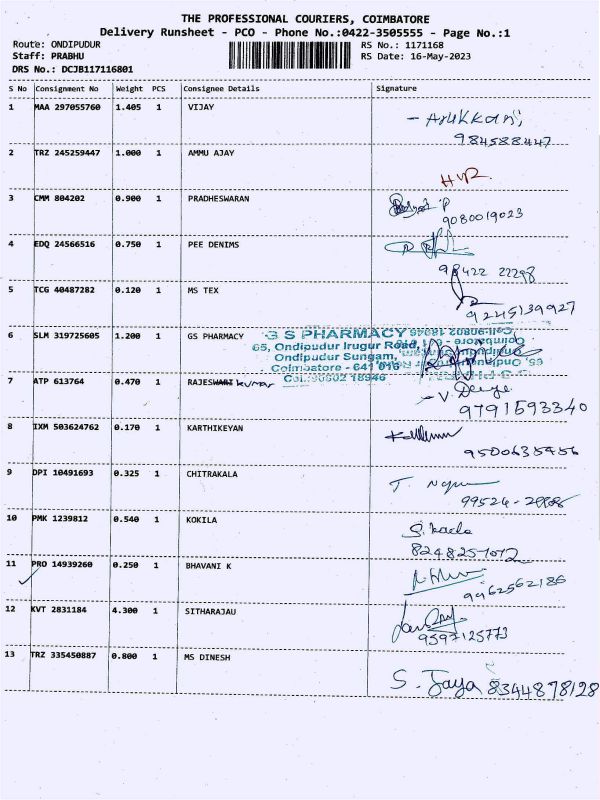 THE PROFESSIONAL COURIERS, COIMBATORE
Delivery Runsheet - PCO - Phone No.:0422-3505555 - Page No.:1
Route: ONDIPUDUR RS No.: 1171168
Staff: PRABHU RS Date: 16-May-2023
DRS No.: DCJB117116801
S No Consignment No Weight PCS Consignee Details Signature
1 MAA 297055760 1.405 1 VIJAY
984588447
2 TRZ 245259447 1.000 1 AMMU AJAY
3 CMM 804202 0.900 1 PRADHESWARAN
9080019023
4 EDQ 24566516 0.750 1 PEE DENIMS
98422 22298
5 TCG 40487282 0.120 1 MS TEX
9245139927
6 SLM 319725605 1.200 1 GS PHARMACY
G S PHARMACY
65, Ondipudur Irugur Road,
Ondipudur Sungam,
Coimbatore - 641 016
Cell:90802 18946
7 ATP 613764 0.470 1 RAJESWARI kumar
9791593340
8 IXM 503624762 0.170 1 KARTHIKEYAN
9500635456
9 DPI 10491693 0.325 1 CHITRAKALA
99526-
10 PMK 1239812 0.540 1 KOKILA
8248251072
11 PRO 14939260 0.250 1 BHAVANI K
9962562186
12 KVT 2831184 4.300 1 SITHARAJAU
9597125773
13 TRZ 335450887 0.800 1 MS DINESH
S. Jaya 8344878128